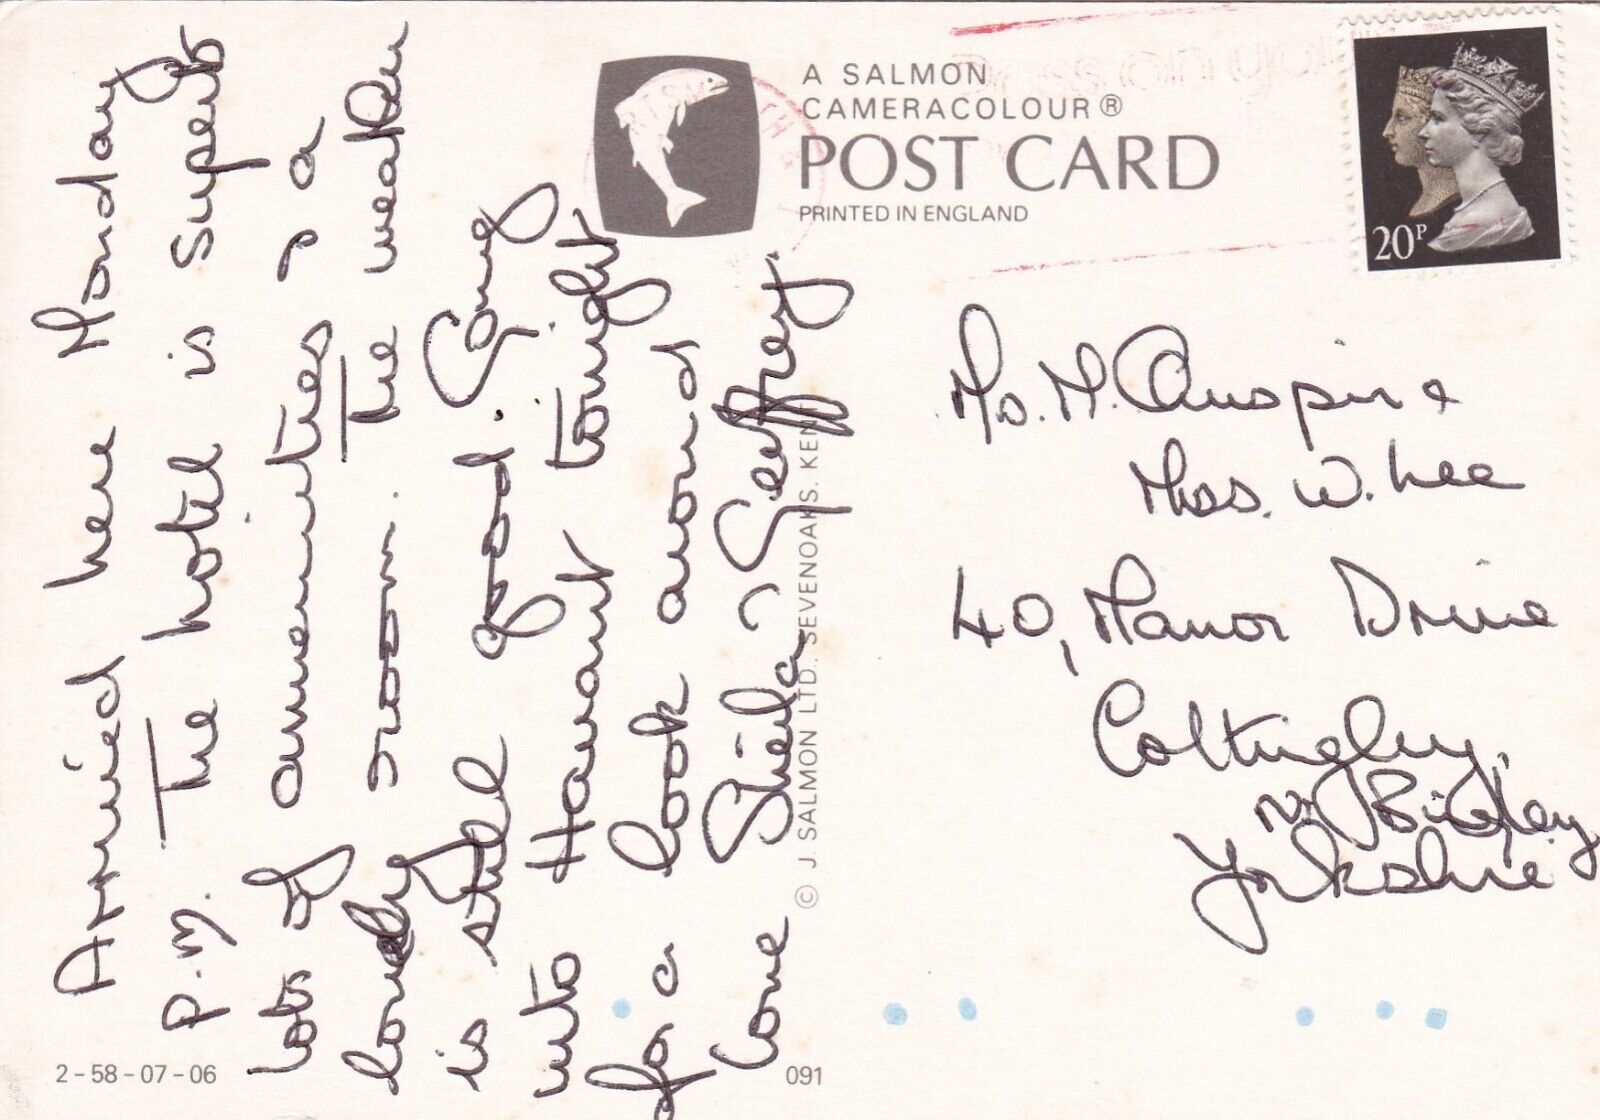 Arrived here Monday
p.m. The hotel is superb
lots of amenities & a
lovely room. The weather
is still good. Going
into Havant tonight
for a look around
Love Sheila & Geoffrey.
A SALMON
CAMERACOLOUR®
POST CARD
PRINTED IN ENGLAND
20P
M. &
Mrs. W. Lee
40, Manor Drive
Cottingley,
Nr Bingley
Yorkshire
© J. SALMON LTD. SEVENOAKS. KENT
2-58-07-06
091